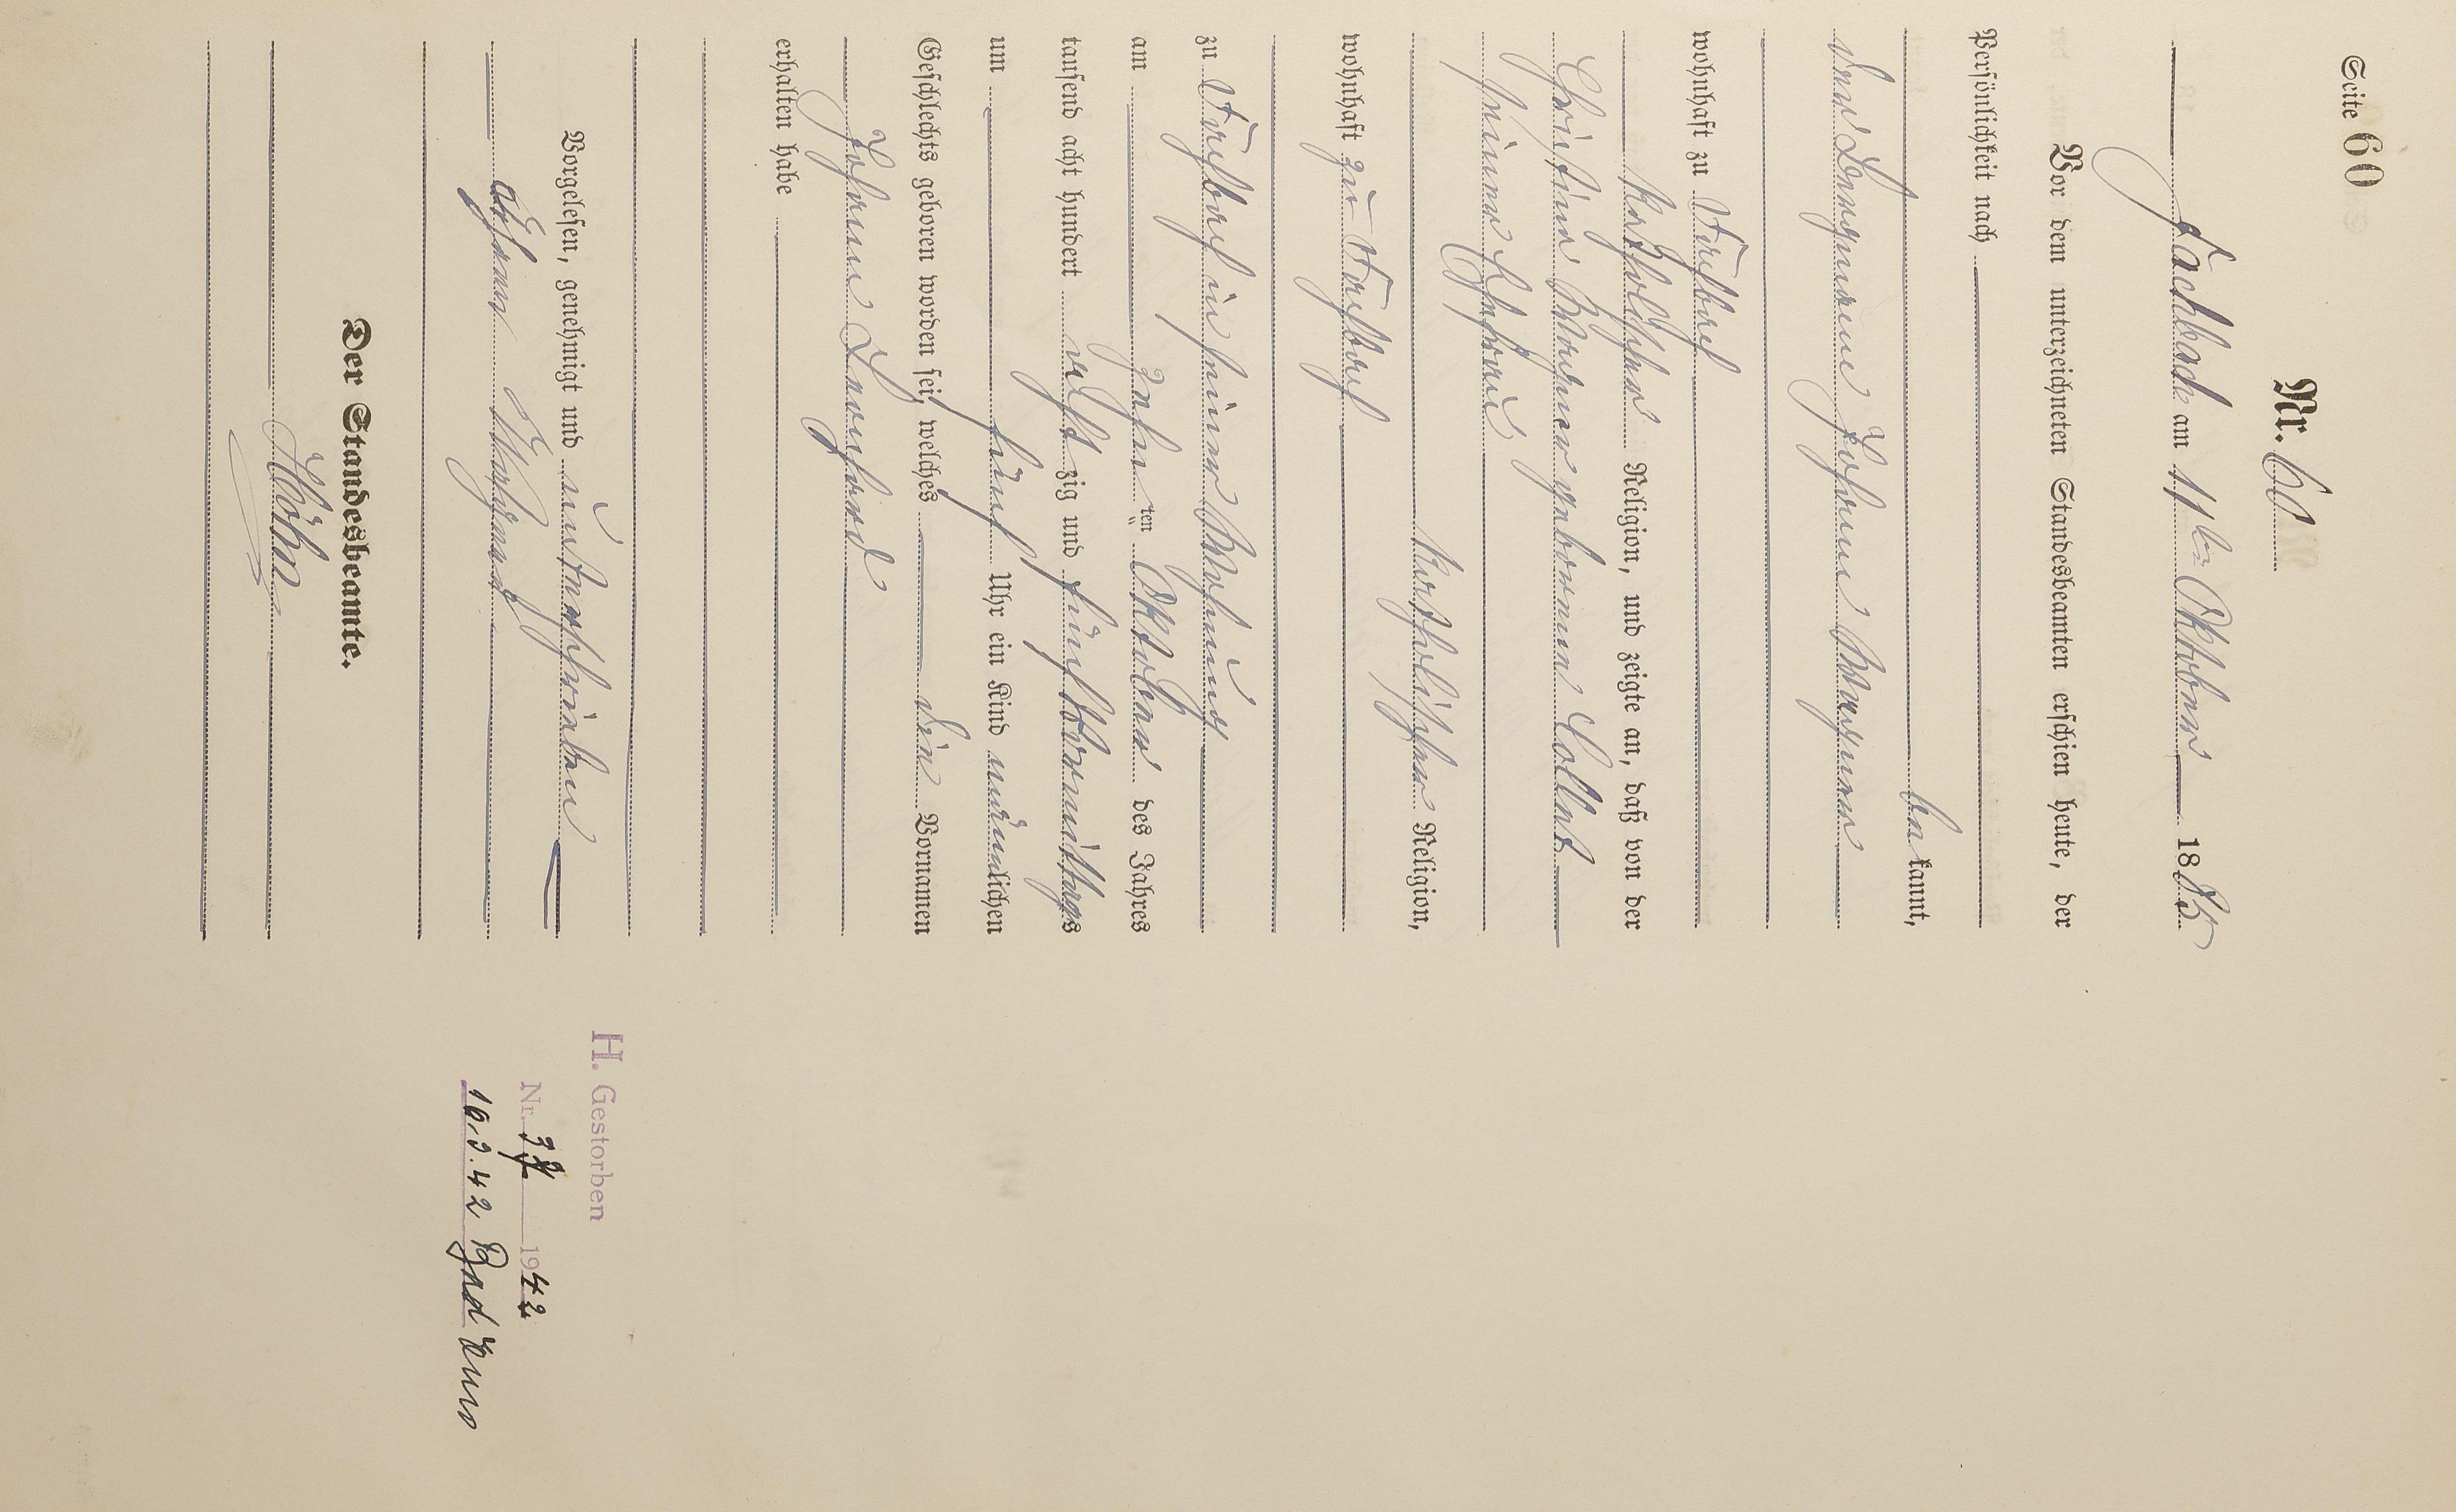 Seite 60
Nr. 60
Fachbach am 11ten Oktober 1885
Vor dem unterzeichneten Standesbeamten erschien heute, der
Persönlichkeit nach
be kannt,
der Bergmann Johann Wagner
wohnhaft zu Fachbach
katholischer Religion, und zeigte an, daß von der
Christina Wagner geborenen Collet
seiner Ehefrau
katholischer Religion,
wohnhaft zu Fachbach
zu Fachbach in seiner Wohnung
am zehnten Oktober des Jahres
tausend acht hundert acht zig und fünf Vormittags
um fünf Uhr ein Kind männlichen
Geschlechts geboren worden sei, welches den Vornamen
Johann
erhalten habe
Vorgelesen, genehmigt und unterschrieben
Johann Wagner
Der Standesbeamte.
Höhn
H. Gestorben
Nr. 1942
10.3.42 Bad Ems